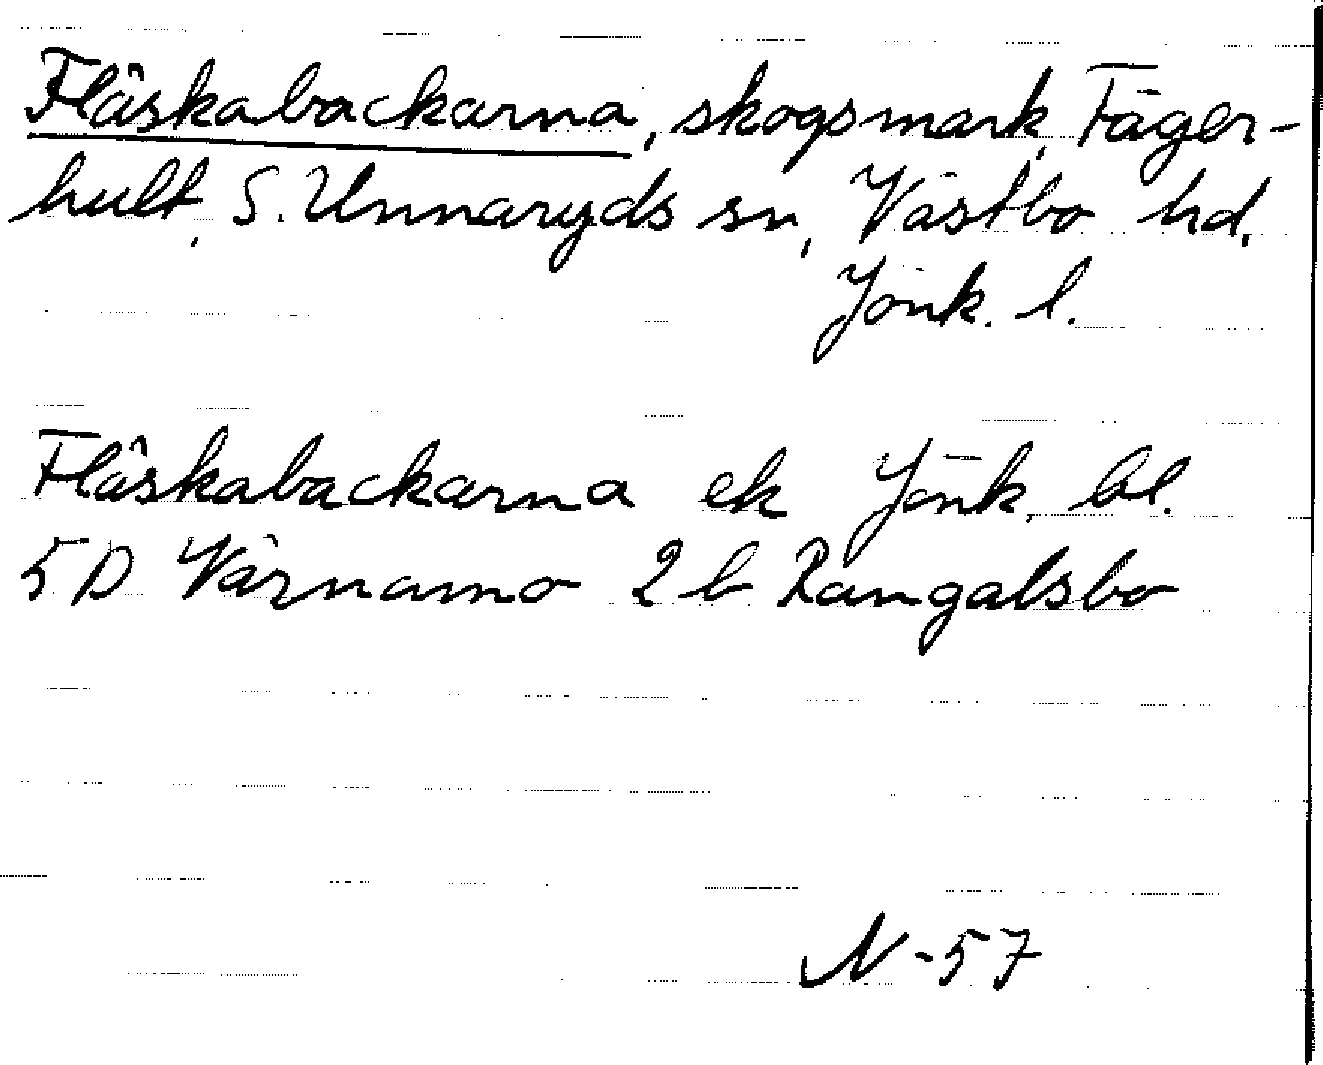 Fläskabackarna, skogsmark, Fäger-
hult, S. Unnaryds sn, Västbo hd,
Jönk. l.
Fläskabackarna ek Jönk. bl.
5D Värnamo 2 b Rangalsbo
N-57